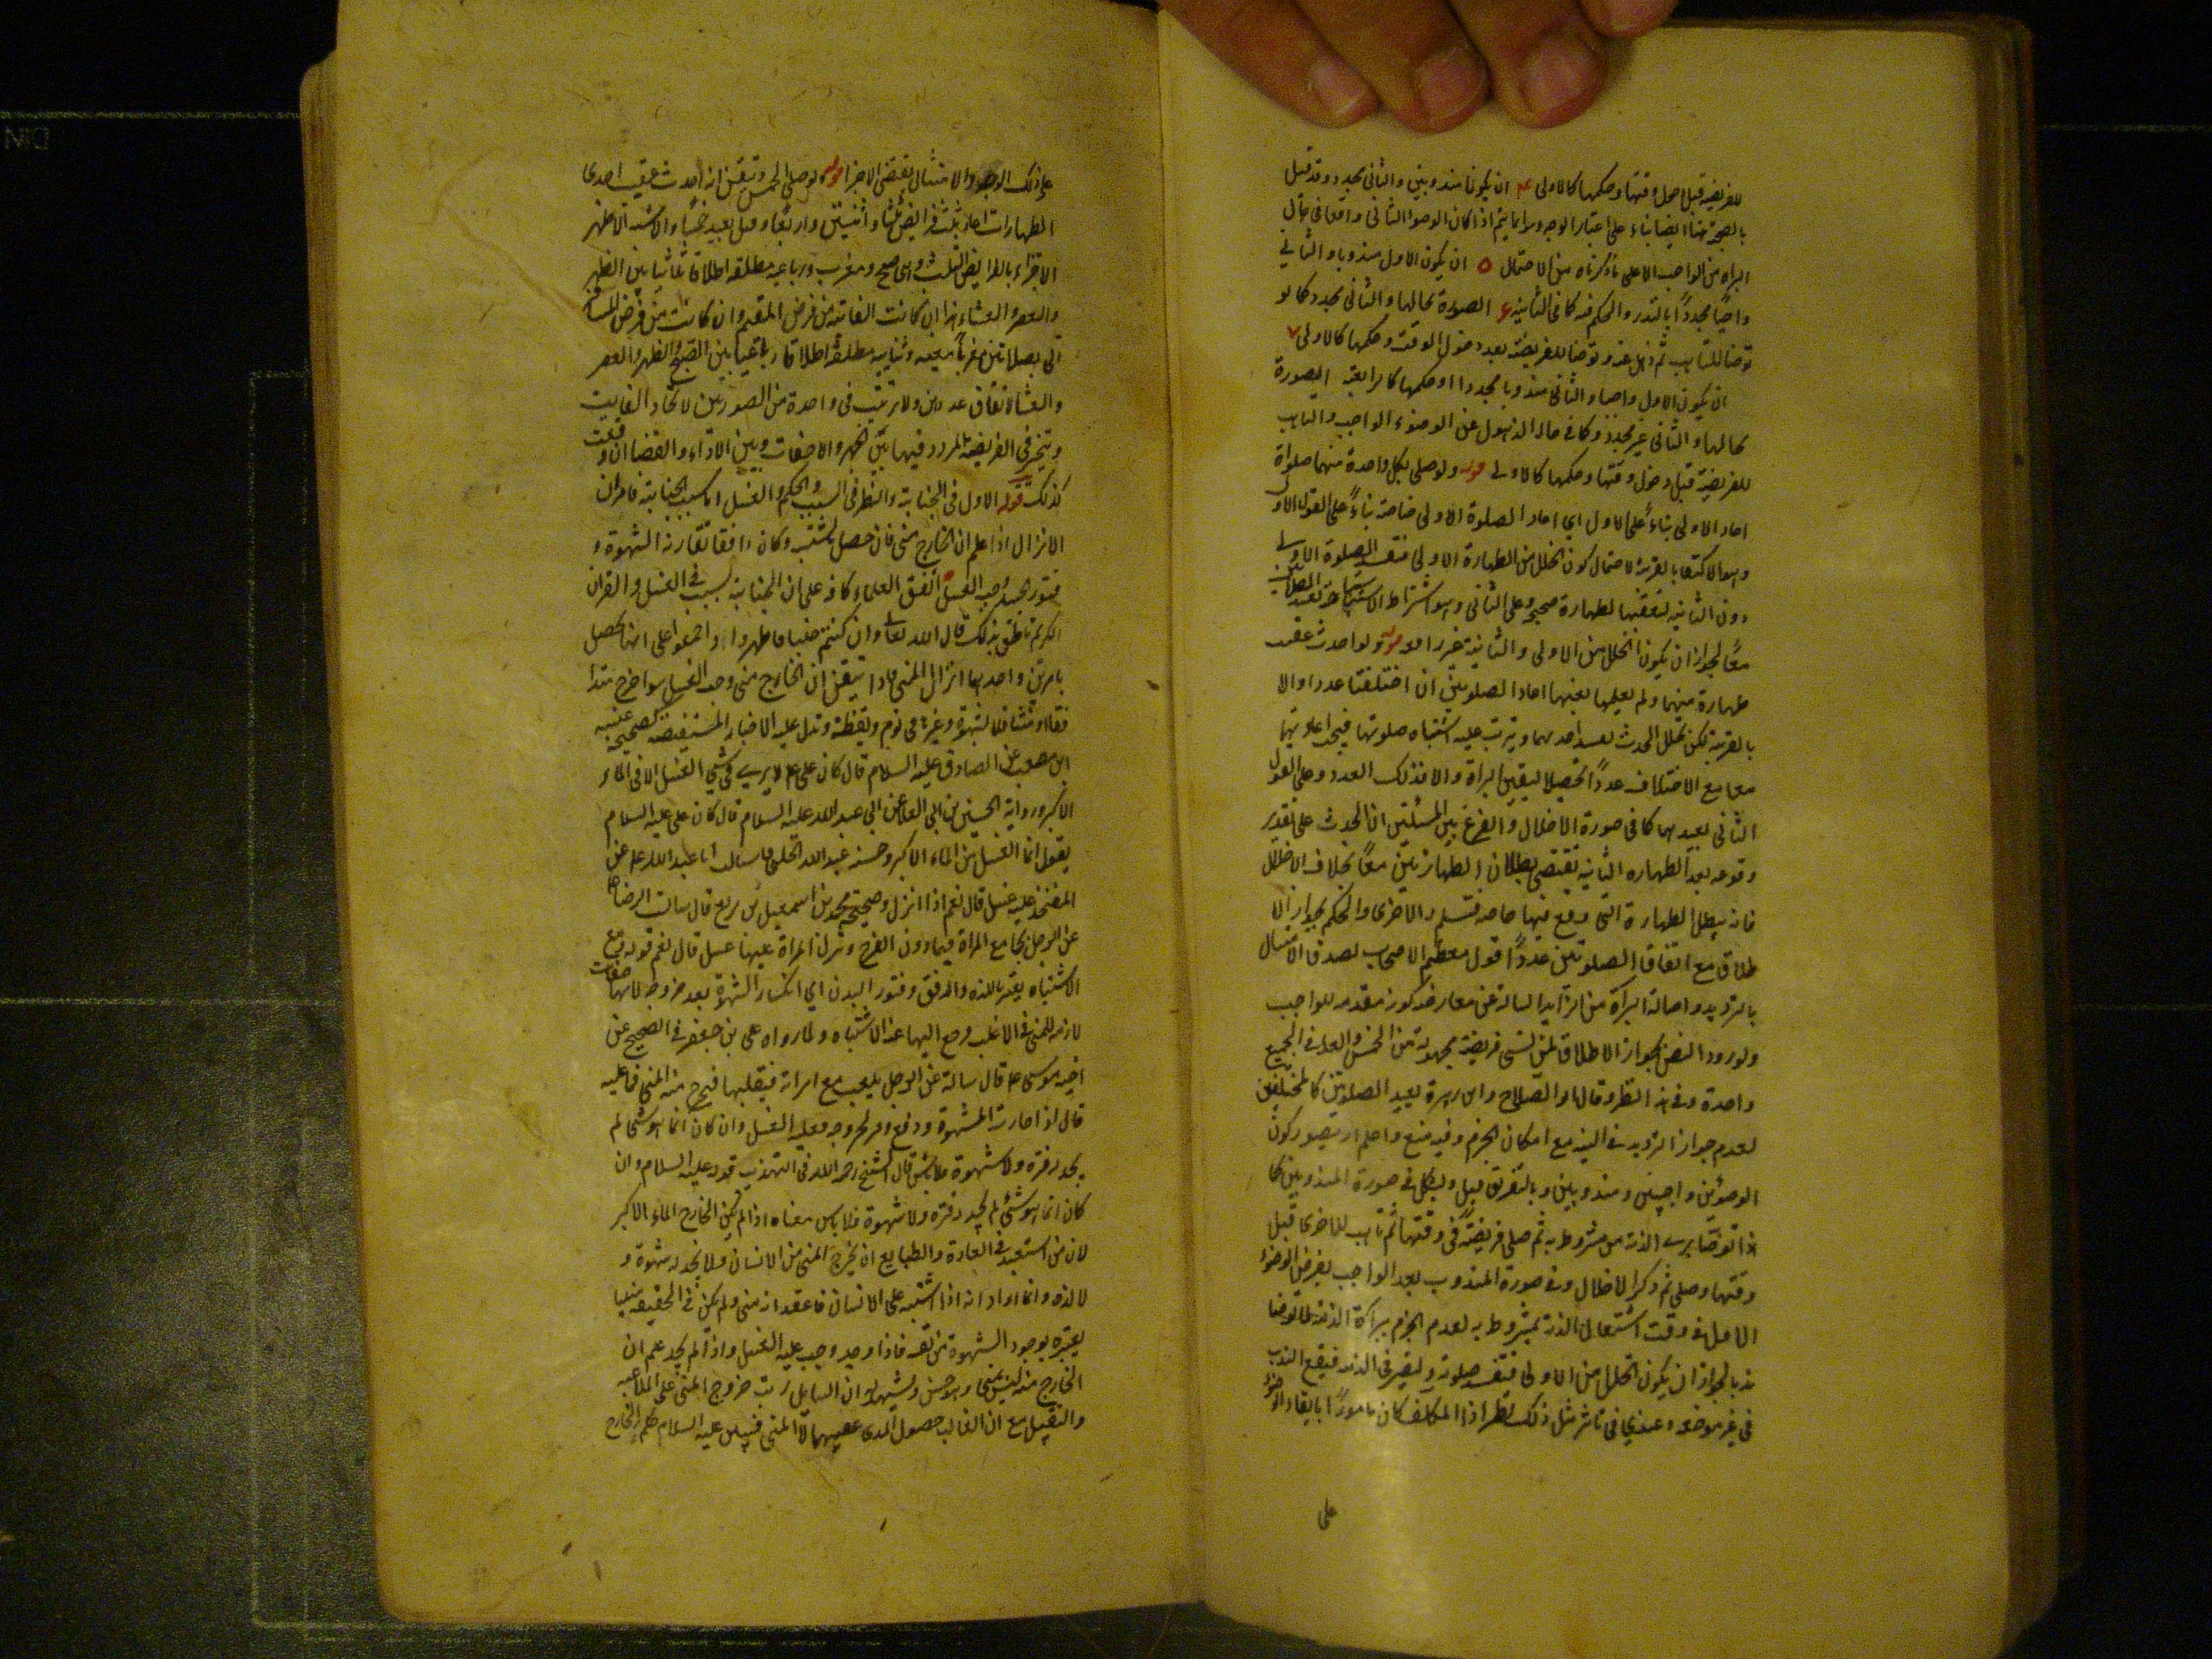 للفريضة قبل دخول وقتها وحكمها كالاولى ٤ ان يكونا مندوبين والثانى مجدد وقد قيل
بالصحة هنا ايضا بناء على اعتبار الوجه وانما يتم اذا كان الوضوء الثانى واقعا فى حال
البراه من الواجب الاعلى ما ذكرناه من الاحتمال ٥ ان يكون الاول مندوبا والثانى
واجبا مجددا بالنذر والحكم فيه كما فى الثانية ٦ الصورة بحالها والثانى مجدد كما لو
توضا للتاهب ثم ذهل عنه وتوضا للفريضة بعد دخول الوقت وحكمها كالاولى ٧
ان يكون الاول واجبا والثانى مندوبا مجددا وحكمها كالرابعة الصورة
بحالها والثانى غير مجدد وكما فى حال الذهول عن الوضوء الواجب والتاهب
للفريضة قبل دخول وقتها وحكمها كالاولى قوله ولو صلى بكل واحدة منهما صلوة
اعاد الاولى بناء على الاول اى اعاد الصلوة الاولى خاصة بناء على القول الاول
وهو الاكتفا بالقربة لاحتمال كون الخلل من الطهارة الاولى فتفسد الصلوة الاولى
دون الثانية لتعقبها لطهارة صحيحة وعلى الثانى وهو اشتراط الاستباحة تعيد الصلاتين
معا لجواز ان يكون الخلل من الاولى والثانية غير رافعة قوله ولو احدث عقيب
طهارة منهما ولم يعلمها بعينها اعاد الصلوتين ان اختلفتا عددا والا
بالقربة لكن تخلل الحدث بعد احدهما ويترتب عليه اشتباه صلوتهما فيجب اعادتهما
معا مع الاختلاف عددا تحصيلا ليقين البراة والا فذلك العدد وعلى القول
الثانى يعيدهما كما فى صورة الاخلال والفرق بين المسئلتين ان الحدث على تقدير
وقوعه بعد الطهاره الثانية يقتضى بطلان الطهارتين معا بخلاف الاخلال
فانه يبطل الطهارة التى وقع فيها خاصة فتسلم الاخرى والحكم بجواز الا
طلاق مع اتفاق الصلوتين عددا قول معظم الاصحاب لصدق الامتثال
بالترديد واصالة البرآة من الزايد السالة عن معارضة كونه مقدمه للواجب
ولورود النص بجواز الاطلاق لمن نسى فريضة مجهولة من الخمس والعلة فى الجميع
واحدة وفى هذا نظر وقال ابو الصلاح وابن زهرة يعيد الصلوتين كالمختلفين
لعدم جواز الترديد فى النية مع امكان الجزم وفيه منع واعلم انه يتصور كون
الوضوئين واجبين ومندوبين وبالتفريق قيل ويشكل فى صورة المندوبين كما
اذا توضا برئ الذمة من مشروط به ثم صلى فريضة فى وقتها ثم تاهب للاخرى قبل
وقتها وصلى ثم ذكر الاخلال وفى صورة المندوب بعد الواجب بفرض الوضوء
الاول فى وقت اشتغال الذمة بمشروط به لعدم الجزم ببراءة الذمة لما توضا
ندبا لجواز ان يكون الخلل من الاولى فتفسد صلوته وليصير فى الذمة فيقع الندب
فى غير موضعه وعندى فى تاثير مثل ذلك نظر اذ المكلف كان مامورا بايقاع الوضوء
على
على ذلك الوجه والامتثال يقتضى الاجزا قوله ولو صلى الخمس وتيقن انه احدث عقيب احدى
الطهارات اعاد ثلث فرايض ثلثا واثنتين واربعا وقيل يعيد خمسا والاشبه الاظهر
الاجتزاء بالفرايض الثلث وهى صبح ومغرب ورباعية مطلقة اطلاقا ثلاثيا بين الظهر
والعصر والعشاء هذا ان كانت الفائتة من فرض المقيم وان كانت من فرض المسافر
اتى بصلاتين مغربا معينه وثنائية مطلقة اطلاقا رباعيا بين الصبح والظهر والعصر
والعشا لاتفاق عددين ولا ترتيب فى واحدة من الصورتين لاتحاد الفايت
ويتخير فى الفريضة المردد فيها بين الجهر والاخفات وبين الاداء والقضا ان وقعت
كذلك قوله الاول فى الجنابة والنظر فى السبب والحكم والغسل اما سبب الجنابة فامران
الانزال اذا علم ان الخارج منى فان حصل مشتبه وكان دافقا تقارنه الشهوة و
فتور الجسد وجب الغسل اتفق العلماء كافة على ان الجنابة سبب فى الغسل والقران
الكريم ناطق بذلك قال الله تعالى وان كنتم جنبا فاطهروا واجمعوا على انها تحصل
بامرين واحدهما انزال المنى فاذا تيقن ان الخارج منى وجب الغسل سوا خرج متدا
فقا او متثاقلا لشهوة وغيرها فى نوم ويقظة وتدل عليه الاخبار المستفيضة كصحيحة عنبسه
ابن مصعب عن الصادق عليه السلام قال كان على ع لا يرى فى شىء الغسل الا فى الماء
الاكبر ورواية الحسين بن ابى العلا عن ابى عبد الله عليه السلام قال كان على عليه السلام
يقول انما الغسل من الماء الاكبر وحسنة عبيد الله الحلبى قال سالت ابا عبد الله ع عن
المفخذ عليه غسل قال نعم اذا انزل وصحيحة محمد بن اسمعيل بن بزيع قال سالت الرضا ع
عن الرجل يجامع المراة فيما دون الفرج وتنزل المراة عليها غسل قال نعم قوله ومع
الاشتباه يعتبر باللذه والدفق وفتور البدن اى انكسار الشهوة بعد خروجه لانها صفات
لازمه للمنى فى الاغلب رجع اليها عند الاشتباه ولما رواه على بن جعفر فى الصحيح عن
اخيه موسى ع قال سالته عن الرجل يلعب مع امراته فيقبلها فيخرج منه المنى فما عليه
قال اذا جاءت الشهوة ودفع وفتر لخروجه فعليه الغسل وان كان انما هو شىء لم
يجد له فترة ولا شهوة فلا باس قال الشيخ رحمه الله فى التهذيب قوله عليه السلام وان
كان انما هو شىء لم يجد له فترة ولا شهوة فلا باس معناه اذا لم يكن الخارج الماء الاكبر
لان من المستبعد فى العادة والطبايع ان يخرج المنى من الانسان فلا يجد له شهوة و
لا لذه وانما اراد انه اذا اشتبه على الانسان فاعتقد انه منى ولم يكن فى الحقيقه منيا
يعتبره بوجود الشهوة من نفسه فاذا وجد وجب عليه الغسل واذا لم يجد علم ان
الخارج منه ليس بمنى وهو حسن ويشهد له ان السايل رتب خروج المنى على الملاعبه
والتقبيل مع ان الغالب حصول المذى عقيبهما لا المنى فبين عليه السلام حكم الخارج